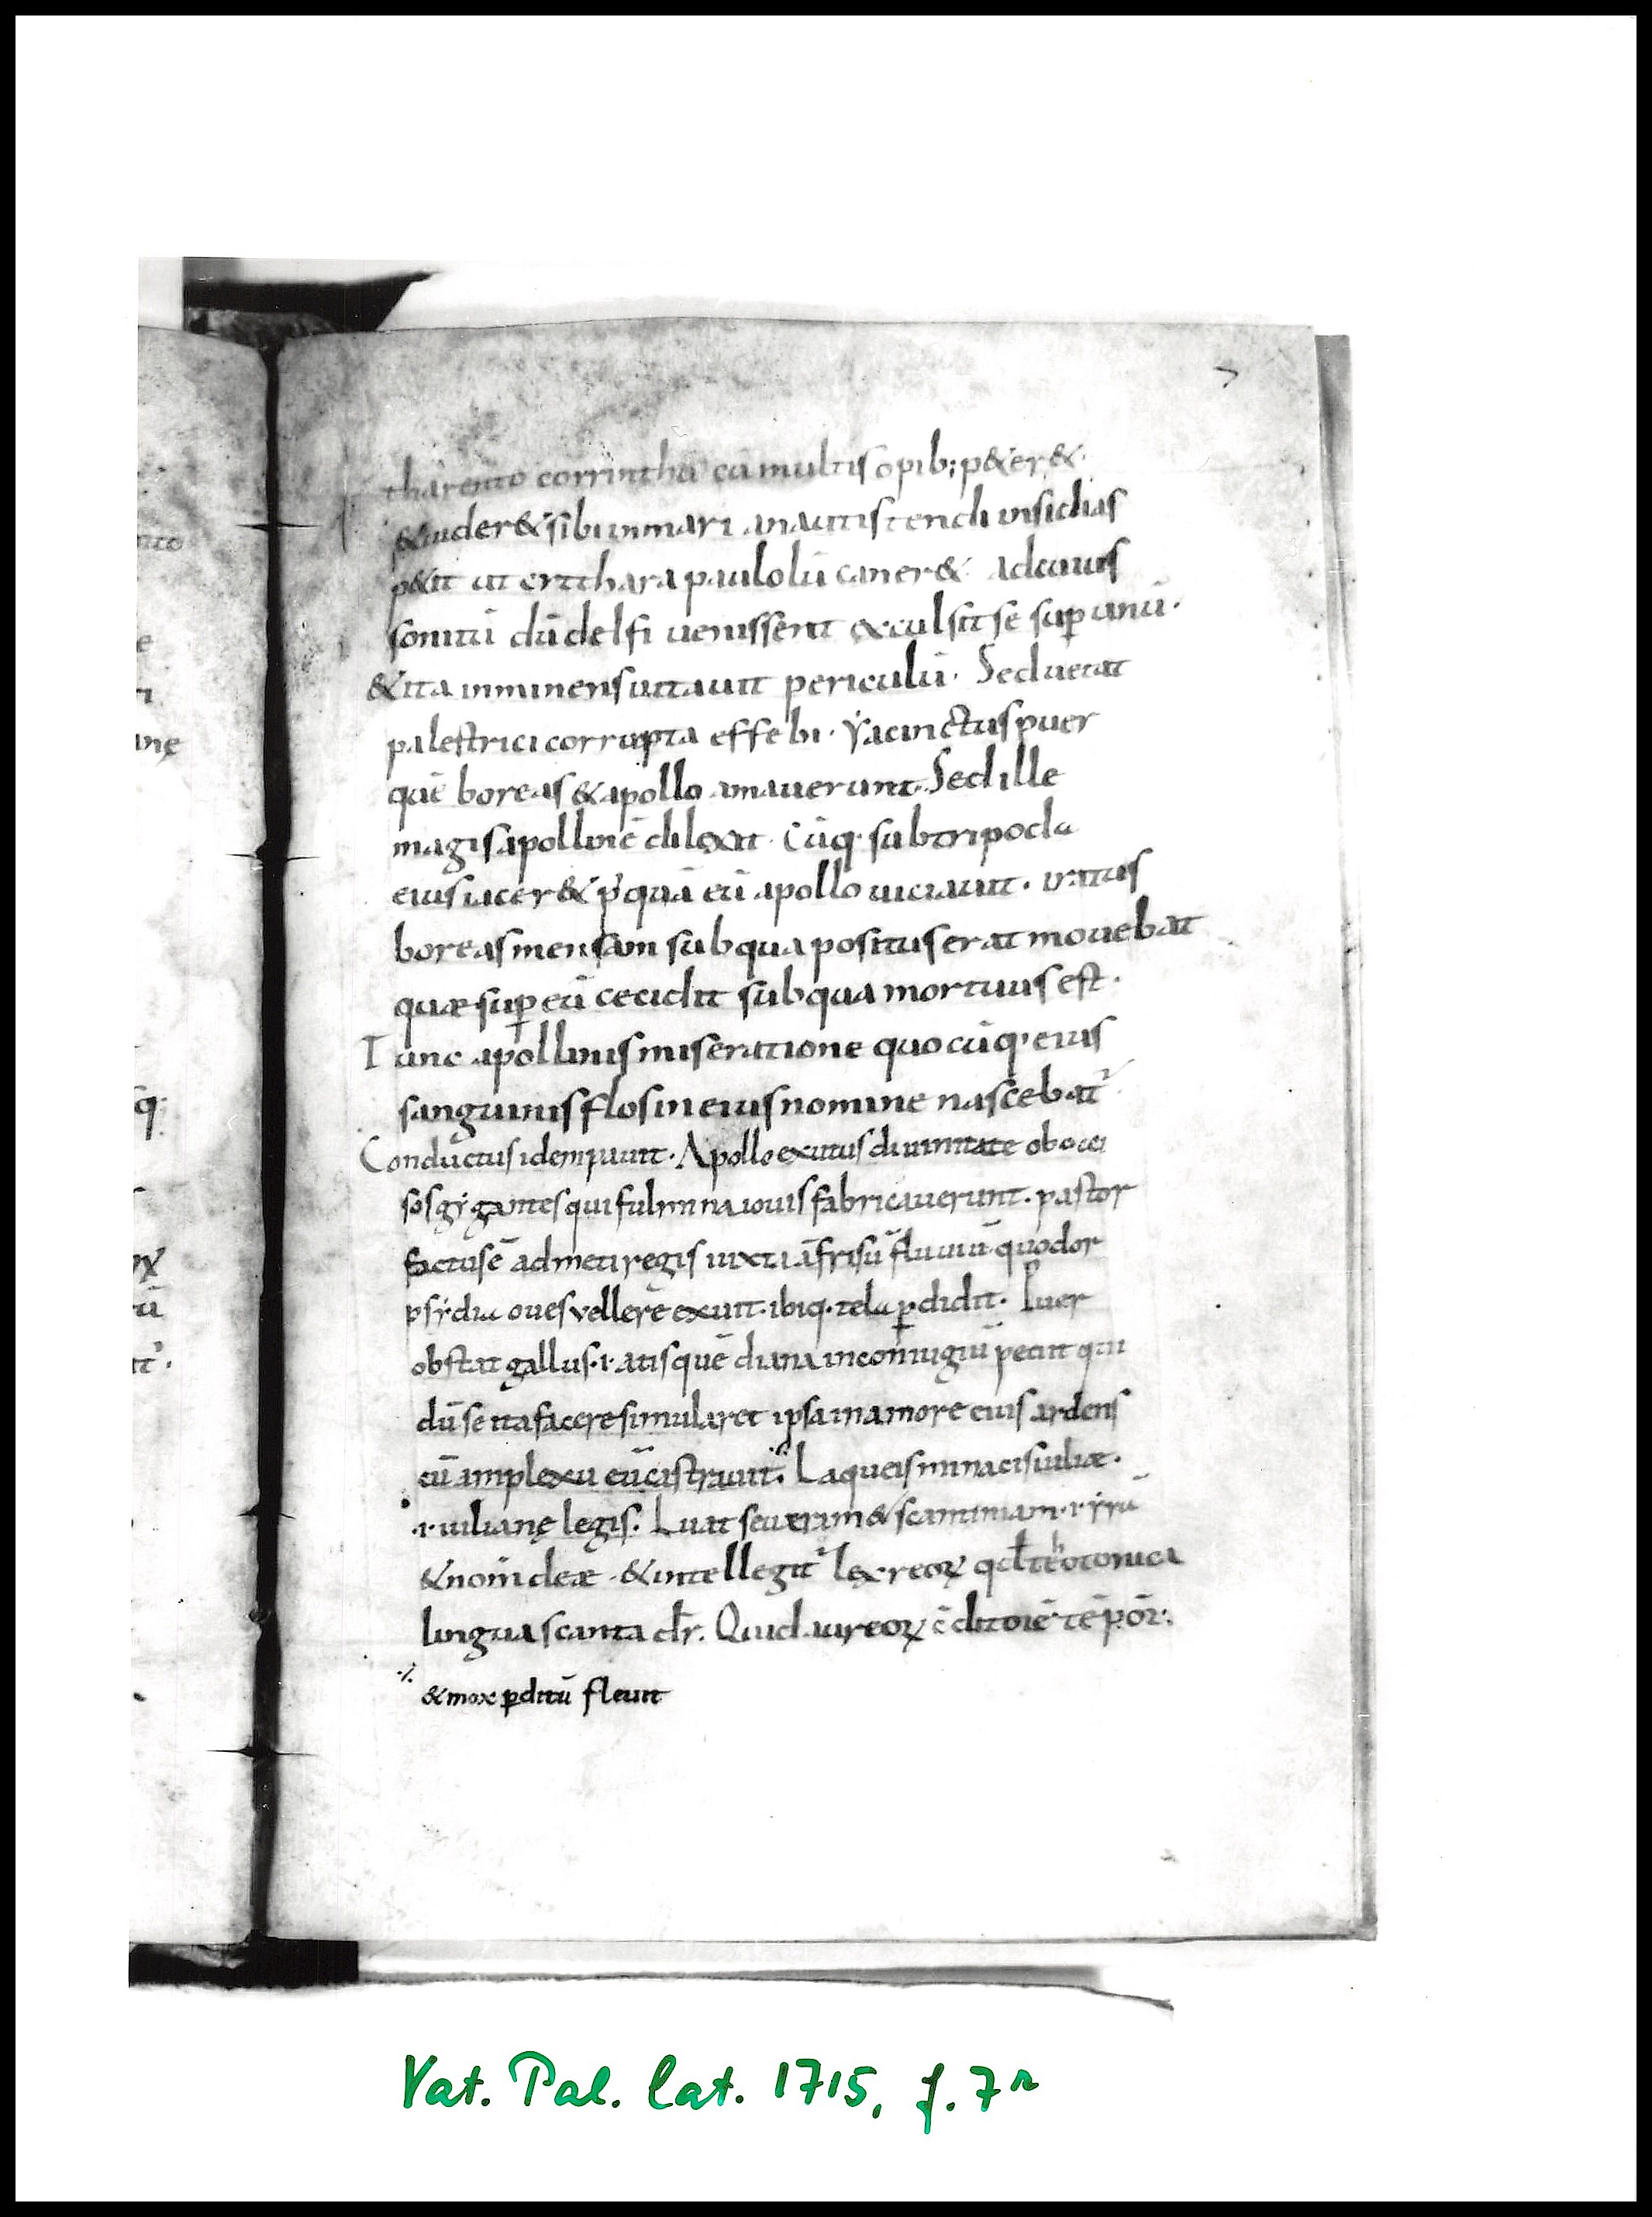 7
tharento corrintha cū multis opib; p&er&.
&uider& sibi inmari anautis tendi insidias
p&it ut cythara paulolū caner& ad cuius
sonitū dū delfi uenissent excussit se sup unū.
& ita inminens uitauit periculū. Sed uetat
palestrici corrupta effebi. Yacinctus puer
quē boreas & apollo amauerunt. Sed ille
magis apollinē dilexit. Cūq. sub tripoda
eius iacer& p' quā eū apollo uiciauit. iratus
boreas mensam sub qua positus erat mouebat
quæ sup eū cecidit sub qua mortuus est.
Tunc apollinis miseratione quocūq. eius
sanguinis flos in eius nomine nascebat
Conductus idem Apollo exutus diuinitate ob occi
sos gygantes qui fulmina iouis fabricauerunt. pastor
factus ē admeti regis iuxta āfrisū fluuiū quod or
psydia oues vellere exuit. ibiq. tela pdidit. Puer
obstat gallus .i. atis quē diana in coniugiū petiit qui
dū se ita facere simularet ipsa in amore eius ardens
cū amplexu eū castrauit. Laqueis minacis iuliæ.
.i. iulianę legis. Luat seueram & scantiniam
& nom deæ & intellegit lex reoꝝ qd teotonica
lingua scanta dr. Quid
& mox pditū fleuit
q.
ū
Vat. Pal. lat. 1715, f. 7r